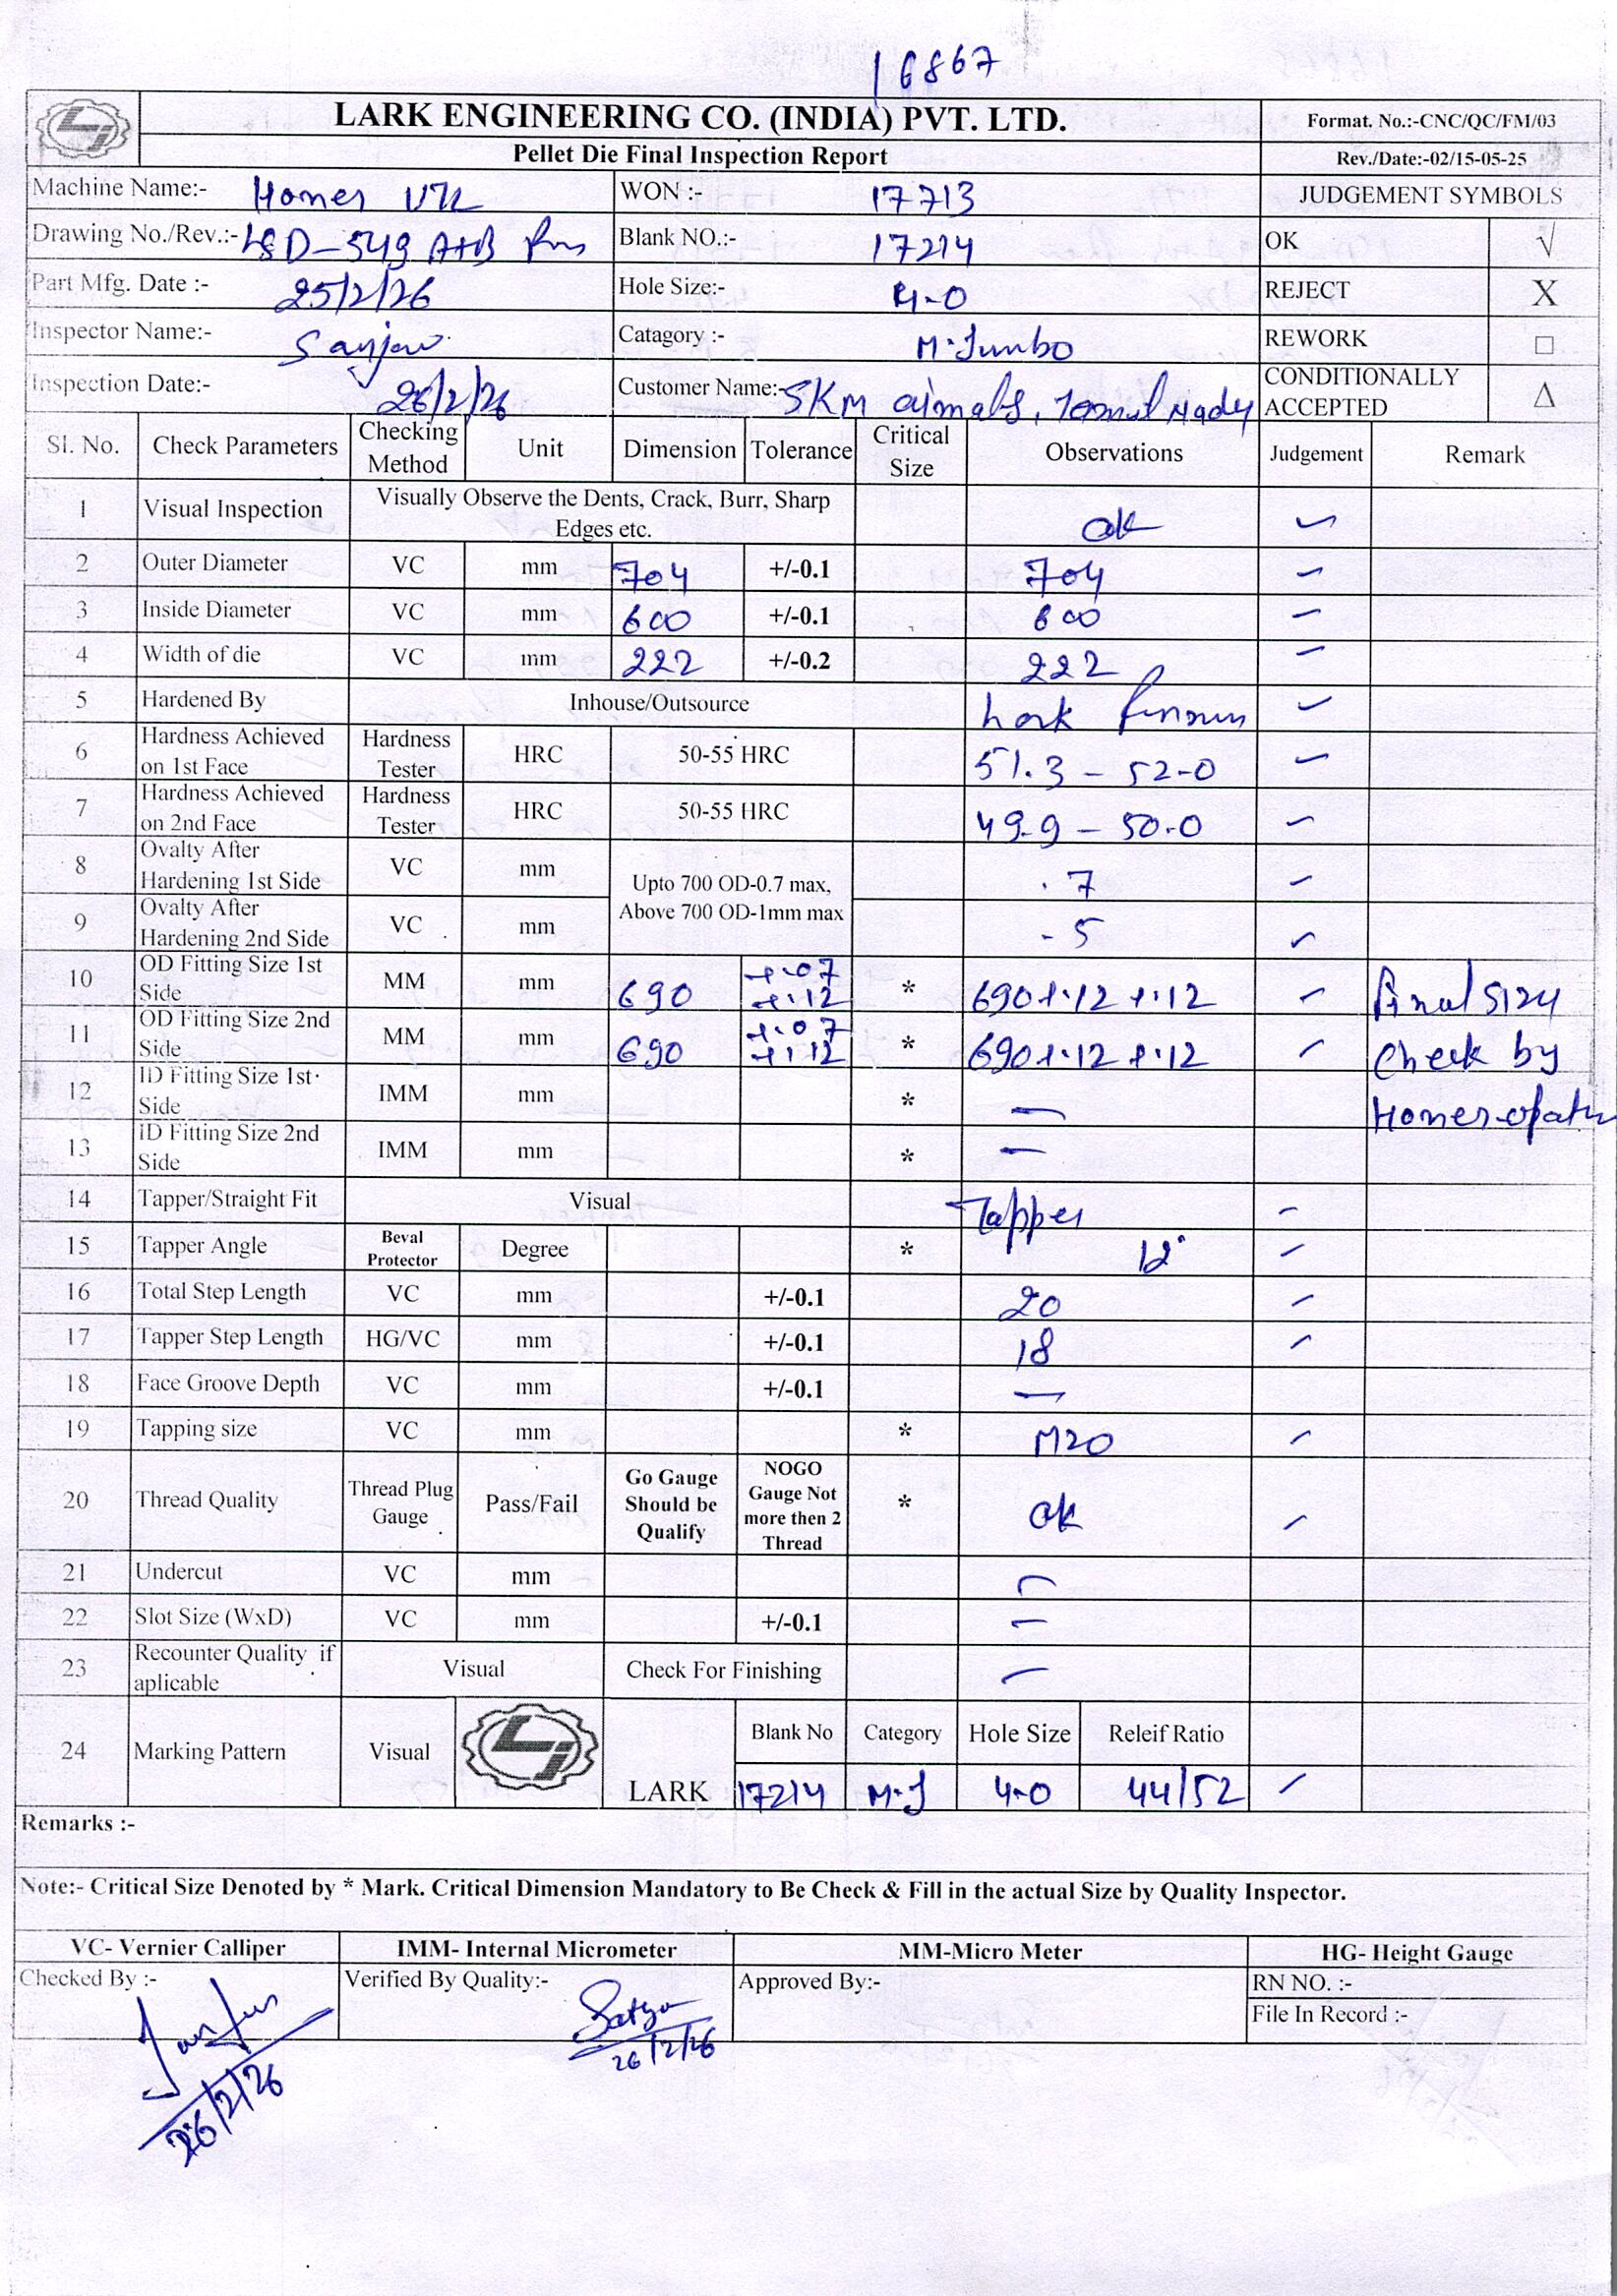 16867
LARK ENGINEERING CO. (INDIA) PVT. LTD.
Format. No.:-CNC/QC/FM/03
Pellet Die Final Inspection Report
Rev./Date:-02/15-05-25
Machine Name:- WON :- 17713 JUDGEMENT SYMBOLS
Drawing No./Rev.:- Blank NO.:- 17214 OK √
Part Mfg. Date :- 25/2/26 Hole Size:- 4.0 REJECT X
Inspector Name:- Sanjay Catagory :- M.Jumbo REWORK □
Inspection Date:- 26/2/26 Customer Name:- SKM CONDITIONALLY ACCEPTED Δ
Sl. No. Check Parameters Checking Method Unit Dimension Tolerance Critical Size Observations Judgement Remark
1 Visual Inspection Visually Observe the Dents, Crack, Burr, Sharp Edges etc. ok
2 Outer Diameter VC mm 704 +/-0.1 704
3 Inside Diameter VC mm 600 +/-0.1 600
4 Width of die VC mm 222 +/-0.2 222
5 Hardened By Inhouse/Outsource Lark
6 Hardness Achieved on 1st Face Hardness Tester HRC 50-55 HRC 51.3 - 52.0
7 Hardness Achieved on 2nd Face Hardness Tester HRC 50-55 HRC 49.9 - 50.0
8 Ovalty After Hardening 1st Side VC mm Upto 700 OD-0.7 max, Above 700 OD-1mm max .7
9 Ovalty After Hardening 2nd Side VC mm .5
10 OD Fitting Size 1st Side MM mm 690 +.07 +.12 * 690+.12 +.12 Final Size
11 OD Fitting Size 2nd Side MM mm 690 +.07 +.12 * 690+.12 +.12 Check by
12 ID Fitting Size 1st Side IMM mm * —
13 ID Fitting Size 2nd Side IMM mm * —
14 Tapper/Straight Fit Visual Tapper
15 Tapper Angle Beval Protector Degree * 12°
16 Total Step Length VC mm +/-0.1 20
17 Tapper Step Length HG/VC mm +/-0.1 18
18 Face Groove Depth VC mm +/-0.1 —
19 Tapping size VC mm * M20
20 Thread Quality Thread Plug Gauge Pass/Fail Go Gauge Should be Qualify NOGO Gauge Not more then 2 Thread * ok
21 Undercut VC mm —
22 Slot Size (WxD) VC mm +/-0.1 —
23 Recounter Quality if aplicable Visual Check For Finishing —
24 Marking Pattern Visual LARK Blank No Category Hole Size Releif Ratio
17214 M.J 4.0 44/52
Remarks :-
Note:- Critical Size Denoted by * Mark. Critical Dimension Mandatory to Be Check & Fill in the actual Size by Quality Inspector.
VC- Vernier Calliper IMM- Internal Micrometer MM-Micro Meter HG- Height Gauge
Checked By :- Verified By Quality:- Approved By:- RN NO. :-
File In Record :-
Satya
26/2/26
26/2/26